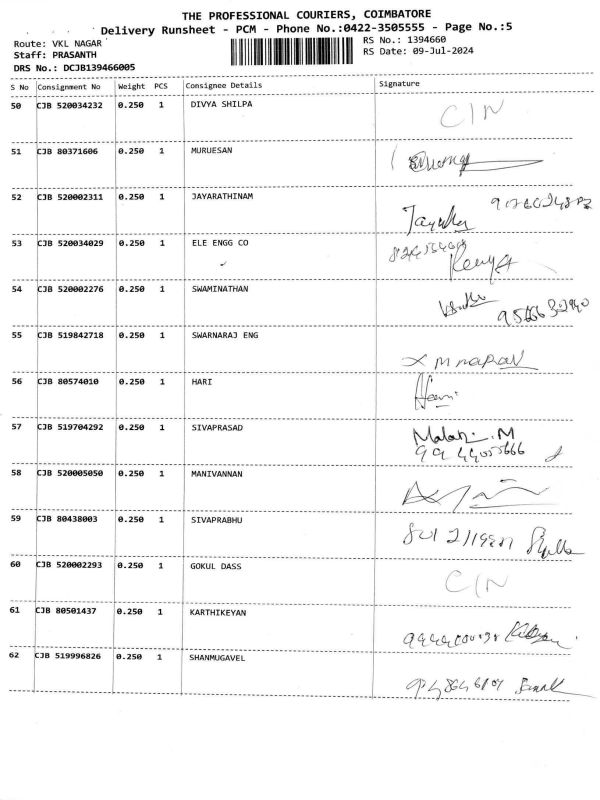 THE PROFESSIONAL COURIERS, COIMBATORE
Delivery Runsheet - PCM - Phone No.:0422-3505555 - Page No.:5
Route: VKL NAGAR RS No.: 1394660
Staff: PRASANTH RS Date: 09-Jul-2024
DRS No.: DCJB139466005
S No Consignment No Weight PCS Consignee Details Signature
50 CJB 520034232 0.250 1 DIVYA SHILPA C/N
51 CJB 80371606 0.250 1 MURUESAN
52 CJB 520002311 0.250 1 JAYARATHINAM
53 CJB 520034029 0.250 1 ELE ENGG CO
54 CJB 520002276 0.250 1 SWAMINATHAN
55 CJB 519842718 0.250 1 SWARNARAJ ENG
56 CJB 80574010 0.250 1 HARI
57 CJB 519704292 0.250 1 SIVAPRASAD Malar. M
58 CJB 520005050 0.250 1 MANIVANNAN
59 CJB 80438003 0.250 1 SIVAPRABHU
60 CJB 520002293 0.250 1 GOKUL DASS C/N
61 CJB 80501437 0.250 1 KARTHIKEYAN
62 CJB 519996826 0.250 1 SHANMUGAVEL